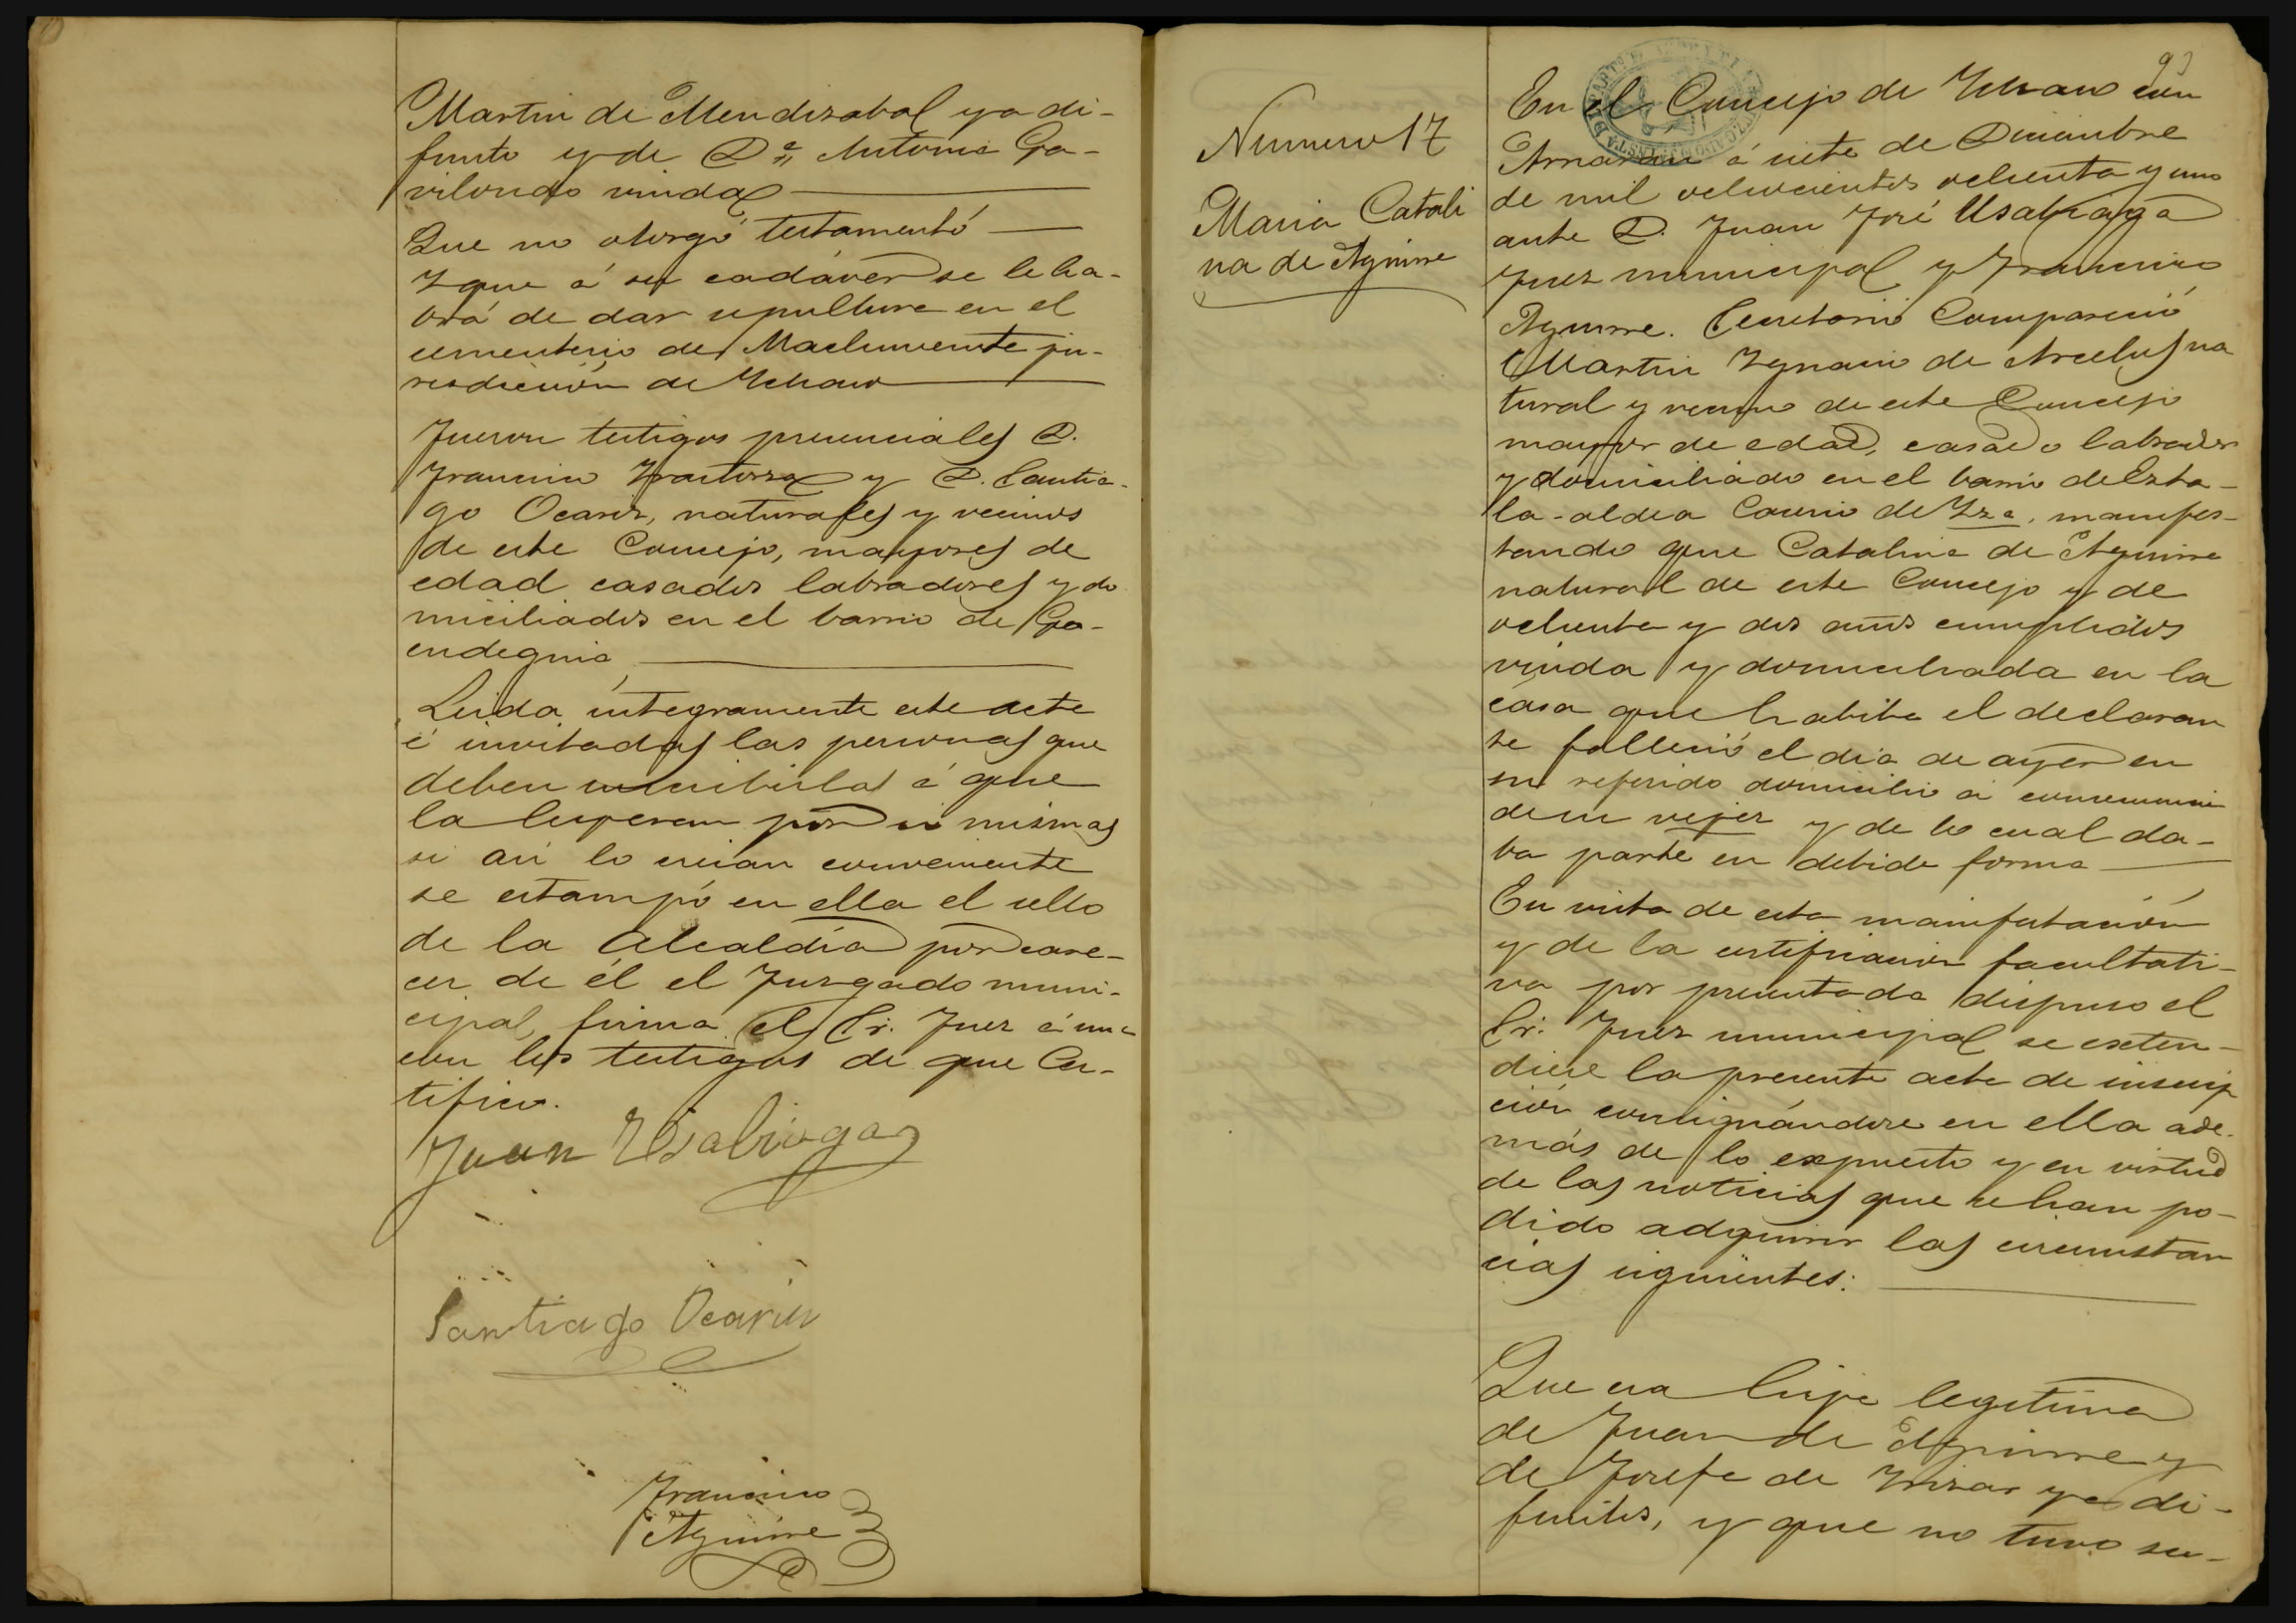 Martin de Mendizabal ya di-
funto y de D.ª Antonia Ga-
vilondo viuda
Que no otorgó testamento
Y que á su cadáver se le ha-
brá de dar sepulture en el
cementerio de Machinvente ju-
risdicción de Ichaso
Fueron testigos presenciales D.
Francisco y D. Santia-
go Ocariz, naturales y vecinos
de este Concejo, mayores de
edad casados labradores y do
miciliados en el barrio de
Leida integramente este acta
é invitadas las personas que
deben suscribirla á que
la leyeran por si mismas
si asi lo creian conveniente
se estampó en ella el sello
de la Alcaldía por care-
cer de él el Juzgado muni-
cipal, firma el Sr. Juez
con los testigos de que Cer-
tifico.
Juan Usabiaga
Santiago Ocariz
Francisco
Aguirre
93
Numero 17
Maria Catali
na de Aguirre
En el Concejo de Ichaso con
Arriaran á siete de Diciembre
de mil ochocientos ochenta y uno
ante D. Juan José Usabiaga
Juez municipal y Francisco
Aguirre. Secretario Compareció
Martin Ygnacio de Arcelus na
tural y vecino de este Concejo
mayor de edad, casado labrador
y domiciliado en el barrio de Ezta-
la-aldea manifes-
tando que Catalina de Aguirre
natural de este Concejo y de
ochenta y dos años cumplidos
viuda y domiciliada en la
casa que habita el declaran
te falleció el dia de ayer en
su referido domicilio á consecuencia
de su vejez y de lo cual da-
ba parte en debida forma
En vista de esta manifestación
y de la certificación facultati-
va por presentada dispuso el
Sr. Juez municipal se exten-
diese la presente acta de inscrip
ción consignándose en ella ade-
más de lo expuesto y en virtud
de las noticias que se han po-
dido adquirir las circunstan
cias siguientes:
Que era hija legitima
de Juan de Aguirre y
de Josefa de Irizar ya di-
funtos, y que no tuvo su-